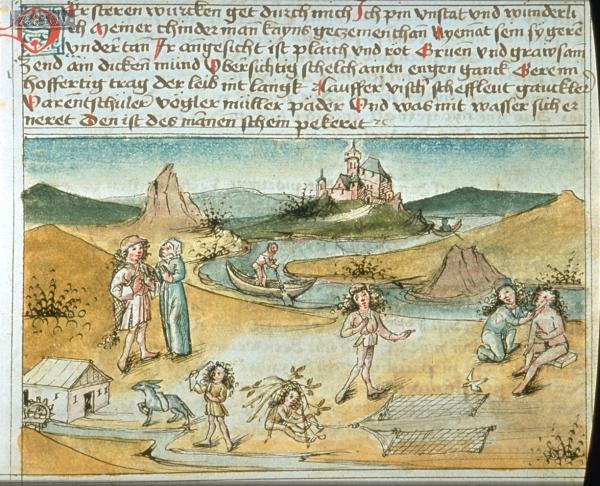 Der steren wurcken get durch mich Ich pin vnstat vnd wunderli
ch Meiner chinder man kayns geczemen than Nyemat sein sy gere
n vnder tan Ir angesicht ist plaich vnd rot Gruen vnd grawsam
Zend ain dicken mund Vbersichtig schelch ainen engen ganck Geren
hoffertig trag der leib nit langk Lauffer visch scheffleut gauckler
Varentschuler vogler muller pader Vnd was mit wasser sich er
neret Den ist des manen schein pekeret ꝛc